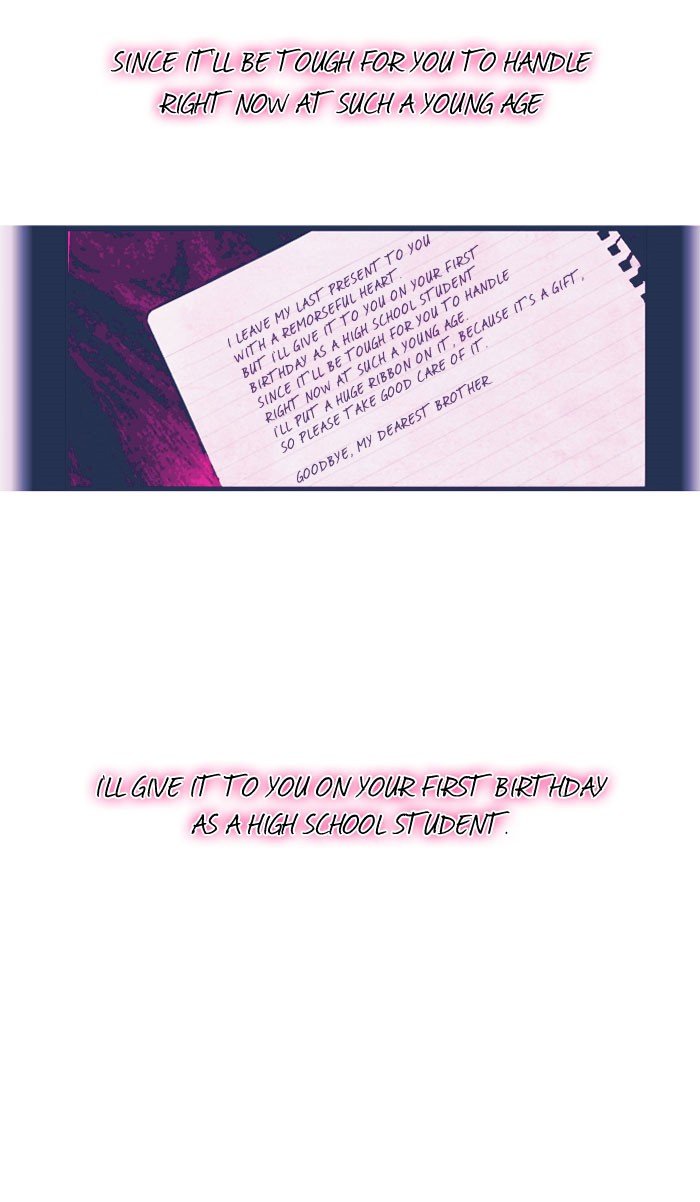 SINCE IT'LL BE TOUGH FOR YOU TO HANDLE
RIGHT NOW AT SUCH A YOUNG AGE
I LEAVE MY LAST PRESENT TO YOU
WITH A REMORSEFUL HEART.
BUT I'LL GIVE IT TO YOU ON YOUR FIRST
BIRTHDAY AS A HIGH SCHOOL STUDENT
SINCE IT'LL BE TOUGH FOR YOU TO HANDLE
RIGHT NOW AT SUCH A YOUNG AGE.
I'LL PUT A HUGE RIBBON ON IT, BECAUSE IT'S A GIFT,
SO PLEASE TAKE GOOD CARE OF IT.
GOODBYE, MY DEAREST BROTHER
I'LL GIVE IT TO YOU ON YOUR FIRST BIRTHDAY
AS A HIGH SCHOOL STUDENT.